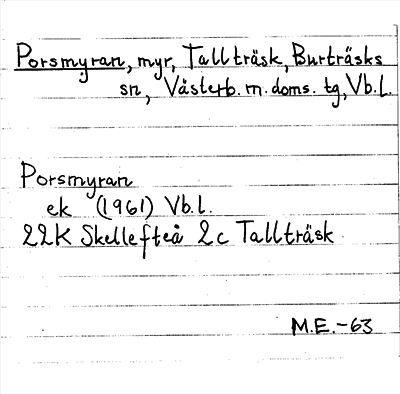 Porsmyran, myr, Tallträsk, Burträsks
sn, Västerb. m. doms. tg, Vb.l.
Porsmyran
ek (1961) Vb.l.
22K Skellefteå 2c Tallträsk
M.E.-63